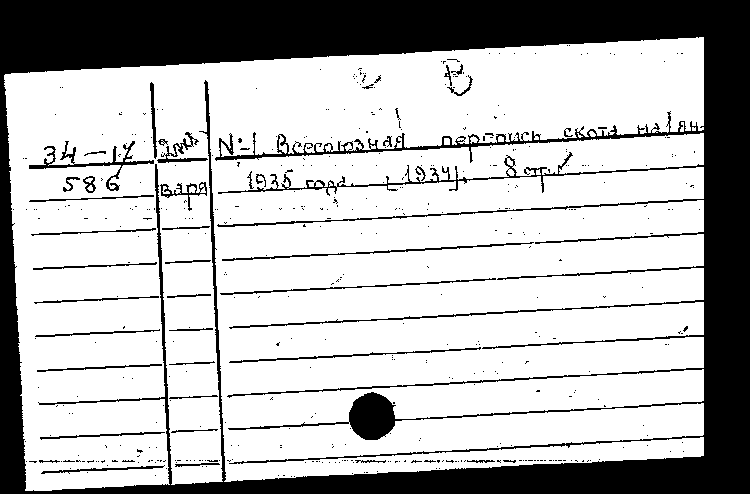 В
34-17 № 1 Всесоюзная перепись скота на 1 ян-
586 варя 1935 года. [1934]. 8 стр.